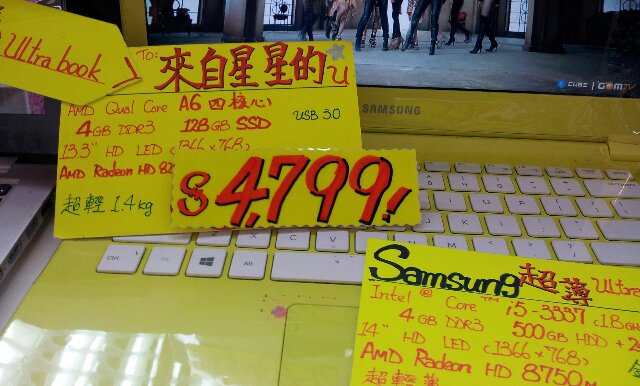 Ultra book
To: 來自星星的U
AMD Qual Core A6 四核心
4GB DDR3 128GB SSD
USB 3.0
13.3" HD LED (1366x768)
AMD Radeon HD 82
超輕 1.4kg
$4,799!
SAMSUNG
CUBS | GOMTV
Ctrl
Fn
Alt
Samsung 超薄 Ultra
Intel ® Core ™ i5-3337 (1.8G
4GB DDR3 500GB HDD + 2
14" HD LED (1366x768)
AMD Radeon HD 8750
超輕薄